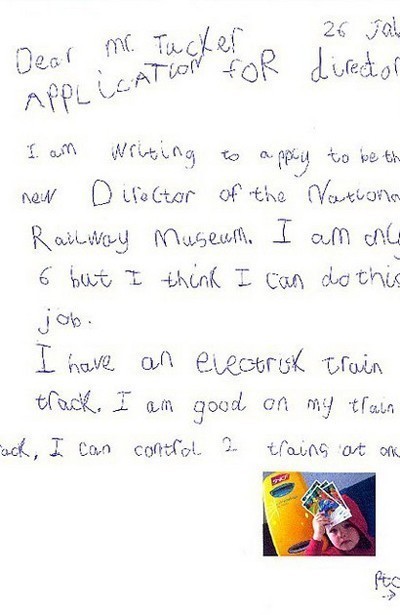 26
Dear Mr. Tucker
APPLICATION FOR director
I am writing to appty to be th
new Director of the Nationa
Railway Museum. I am only
6 but I think I can do this
job.
I have an electruk train
track. I am good on my train
rack, I can control 2 trains at on
Pto